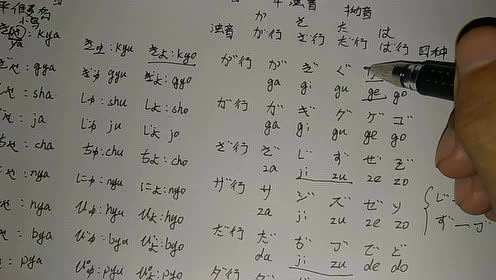 平假名 浊音 拗音
か さ た は
ゃ: kya きゅ: kyu きょ: kyo 浊音 が行 ざ行 だ行 ば行 四种
ゃ: gya ぎゅ gyu ぎょ: gyo が行 が ぎ ぐ
ga gi gu ge go
ゃ: sha しゅ: shu しょ: sho ガ行 ガ ギ グ ゲ ゴ
ga gi gu ge go
ゃ: ja じゅ ju じょ jo ざ行 ざ じ ず ぜ ぞ
ちゃ: cha ちゅ: chu ちょ: cho za ji zu ze zo
ゃ: nya にゅ: nyu にょ: nyo ザ行 ジ ズ
za ji zu ze zo
ゃ: hya ひゅ: hyu ひょ: hyo だ行 だ ぢ づ で ど
ゃ: bya びゅ: byu びょ: byo da ji zu de do
ゃ: pya ぴゅ: pyu ぴょ: pyo ダ行